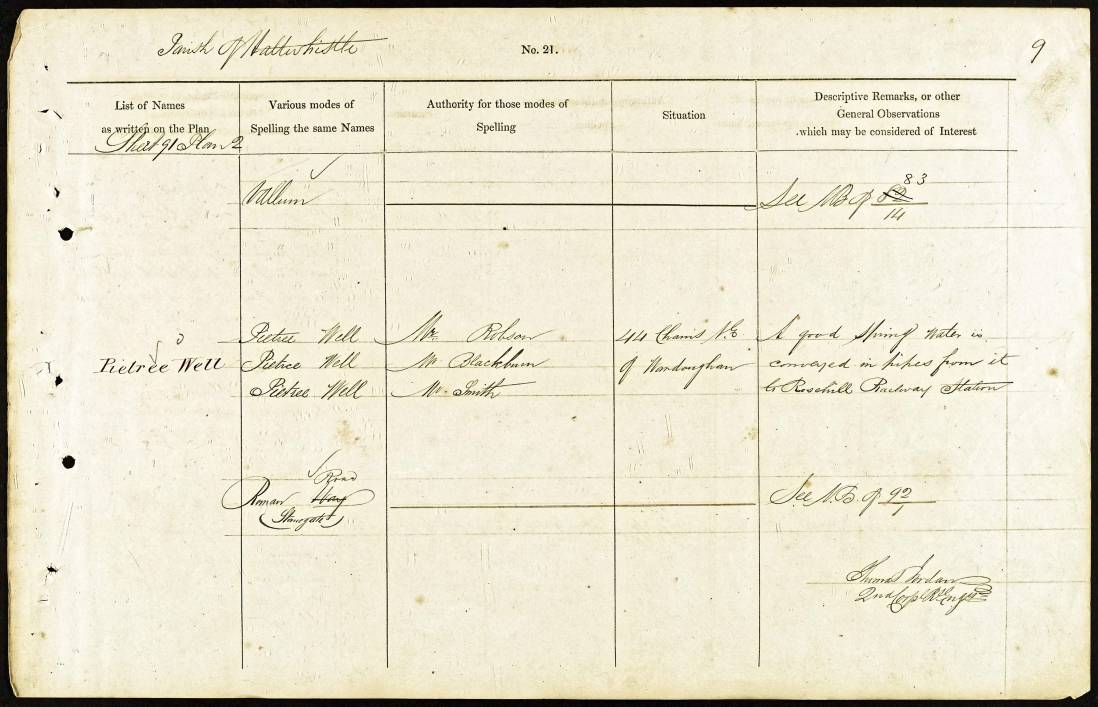 Parish of Haltwhistle
No. 21.
9
List of Names
as written on the Plan
Various modes of
Spelling the same Names
Authority for those modes of
Spelling
Situation
Descriptive Remarks, or other
General Observations
which may be considered of Interest
Sheet 91 Plan 2
Vallum
See NB of 62 83
14
Pietree Well
Pietree Well Mr. Robson 44 Chains N.E. A good Spring water is
Pietree Well Mr. Blackburn of Wardoughan conveyed in pipes from it
Pietree Well Mr. Smith to Rosehill Railway Station
Road
Roman Way
(Stanegate)
See N.B. of 92
1
Thomas Jordan
2nd Corpl. Rl. Engrs.